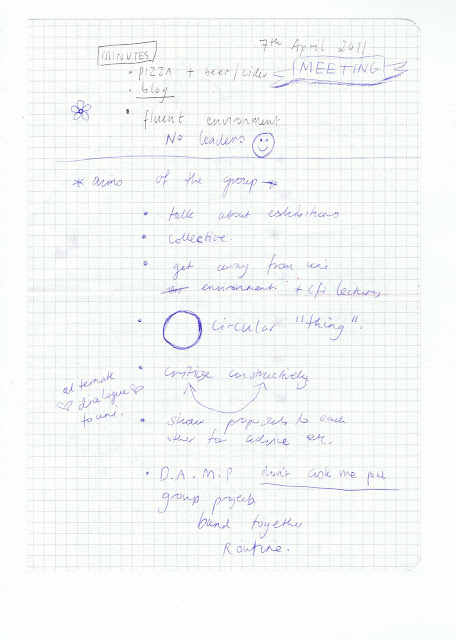 7th April 2011
MINUTES
MEETING
• PIZZA + beer/cider
• blog
• fluent environment
No leaders
* aims of the group *
• talk about exhibitions
• collective.
• get away from uni
environment + lectures
• circular "thing".
• critique constructively
alternate
dialogue
to uni.
• show projects to each
other for advice etc.
• D.A.M.P don't ask me pal
group projects
band together
Routine.